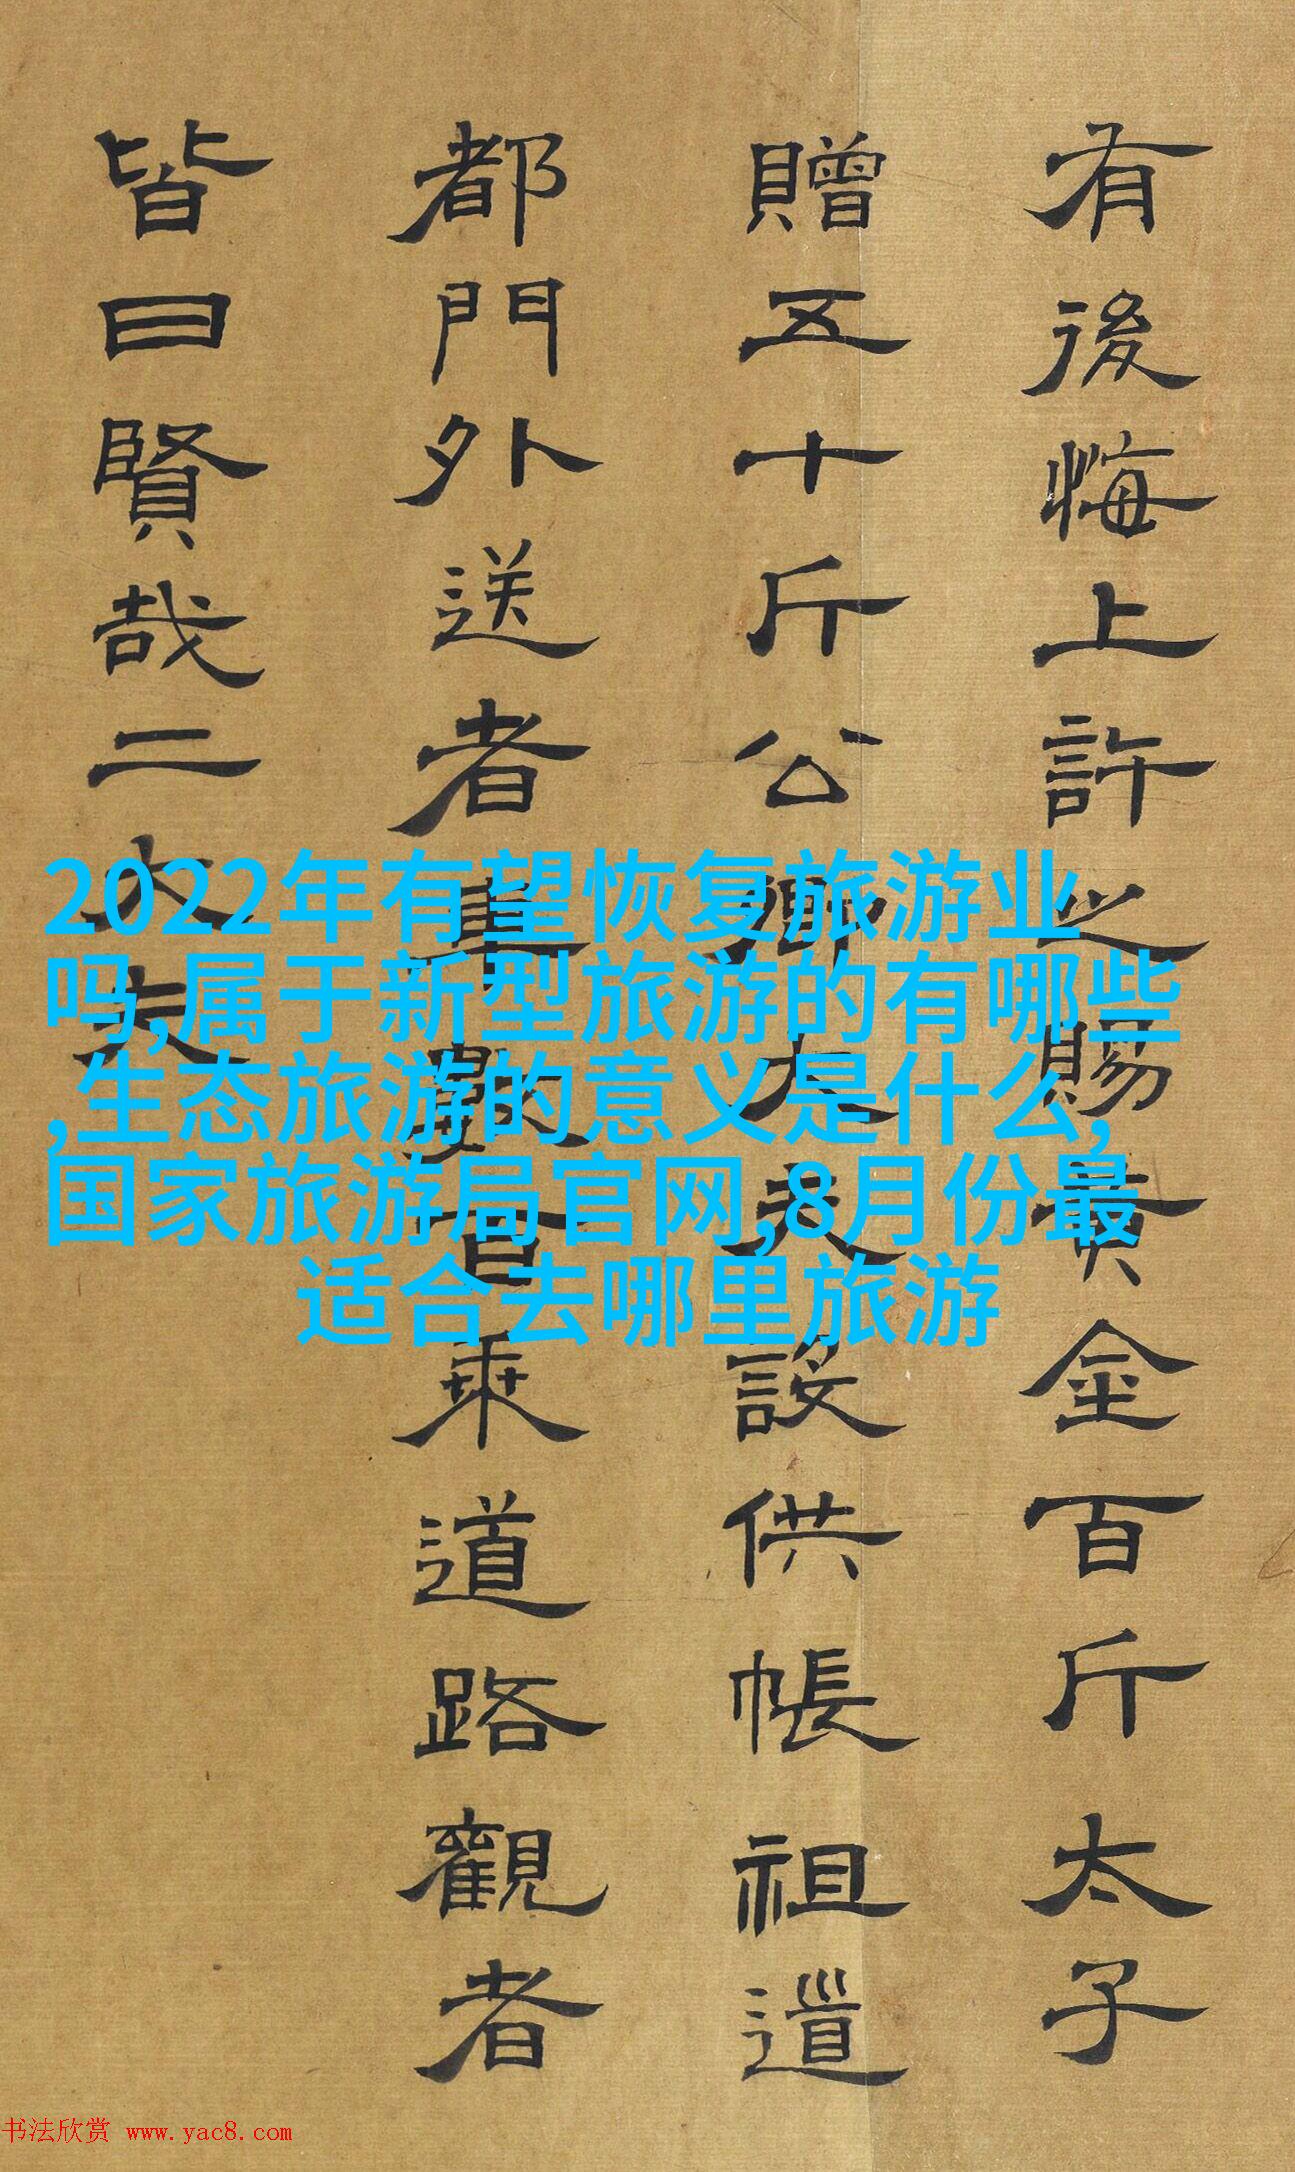 有後悔上許之賜黃金百斤太子
贈五十斤公卿大夫設供帳祖道
都門外送者車數百乘道路觀者
皆曰賢哉二大夫
2022年有望恢复旅游业
吗,属于新型旅游的有哪些
,生态旅游的意义是什么,
国家旅游局官网,8月份最
适合去哪里旅游
书法欣赏 www.yac8.com